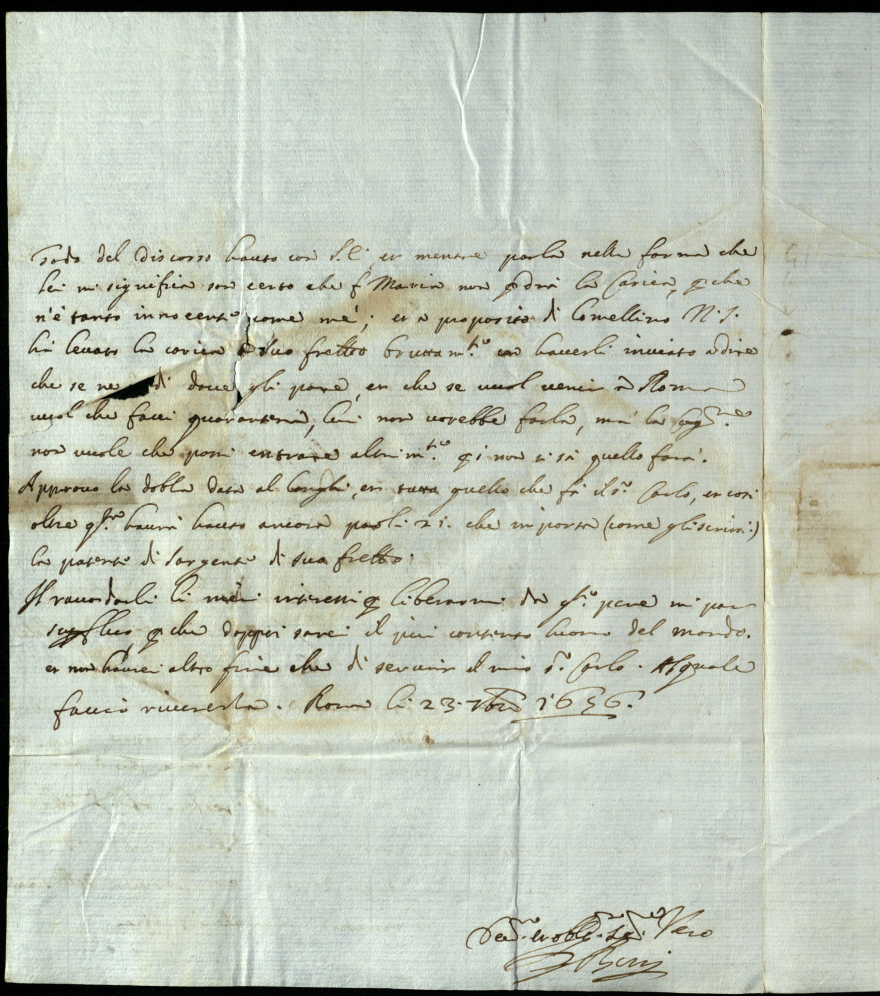 Godo del discorso hauto con S.E., et mentre parla nella forma che
lei mi significa son certo che f. Maria non perdrà la carica, perche
n'è tanto innocente come mè; et a proposito di Comellino N.S.
hà levato la carica suo fretto brutta m.te con haverli inviato a dire
che se ne di dove gli pare, et che se vuol venir à Roma
vuol che facci quarantena, lui non vorebbe farla, mà la
non vuole che possi entrare altrim.te qi non si sà quello farà.
Approvo la dobla data al Longhi, et tutto quello che fà il S.r Carlo, et così
oltre q.sto haurà hauto ancora paoli 21. che importa (come gli scrissi)
la patente di sargente di suo fretto.
Il racordarli li miei interessi per liberarmi da q.te pene mi par
superfluo, perche doppoi sarei il più contento huomo del mondo.
et non haurei altro fine che di servire il mio S.r Carlo. Al quale
faccio riverenza. Roma li 23 7bre 1656.
Dev.mo et obl.mo Se.re Vero